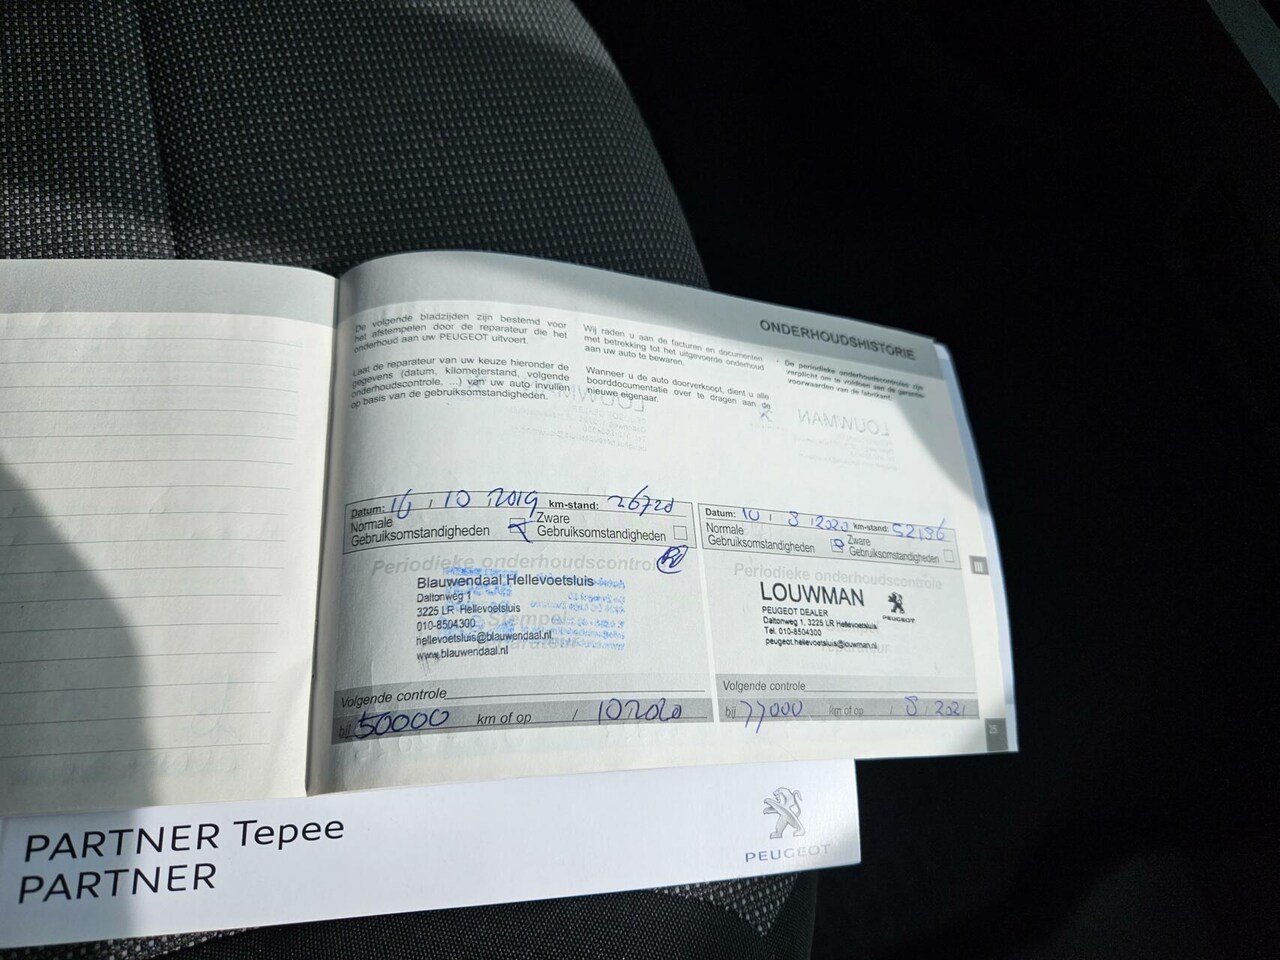 ONDERHOUDSHISTORIE
De volgende bladzijden zijn bestemd voor
het afstempelen door de reparateur die het
onderhoud aan uw PEUGEOT uitvoert.
Laat de reparateur van uw keuze hieronder de
gegevens (datum, kilometerstand, volgende
onderhoudscontrole, ...) van uw auto invullen
op basis van de gebruiksomstandigheden.
Wij raden u aan de facturen en documenten
met betrekking tot het uitgevoerde onderhoud
aan uw auto te bewaren.
Wanneer u de auto doorverkoopt, dient u alle
boorddocumentatie over te dragen aan de
nieuwe eigenaar.
De periodieke onderhoudscontroles zijn
verplicht om te voldoen aan de garantie-
voorwaarden van de fabrikant.
Datum: 16 / 10 2019 km-stand: 26728
Normale
Gebruiksomstandigheden
Zware
Gebruiksomstandigheden
Periodieke onderhoudscontrole
Blauwendaal Hellevoetsluis
Daltonweg 1
3225 LR Hellevoetsluis
010-8504300
hellevoetsluis@blauwendaal.nl
www.blauwendaal.nl
Volgende controle
bij 50000 km of op / 10 2020
Datum: 10 / 8 / 2020 km-stand: 52186
Normale
Gebruiksomstandigheden
Zware
Gebruiksomstandigheden
Periodieke onderhoudscontrole
LOUWMAN
PEUGEOT DEALER
Daltonweg 1, 3225 LR Hellevoetsluis
Tel. 010-8504300
peugeot.hellevoetsluis@louwman.nl
PEUGEOT
Volgende controle
bij 77000 km of op / 8 / 2021
III
25
PARTNER Tepee
PARTNER
PEUGEOT